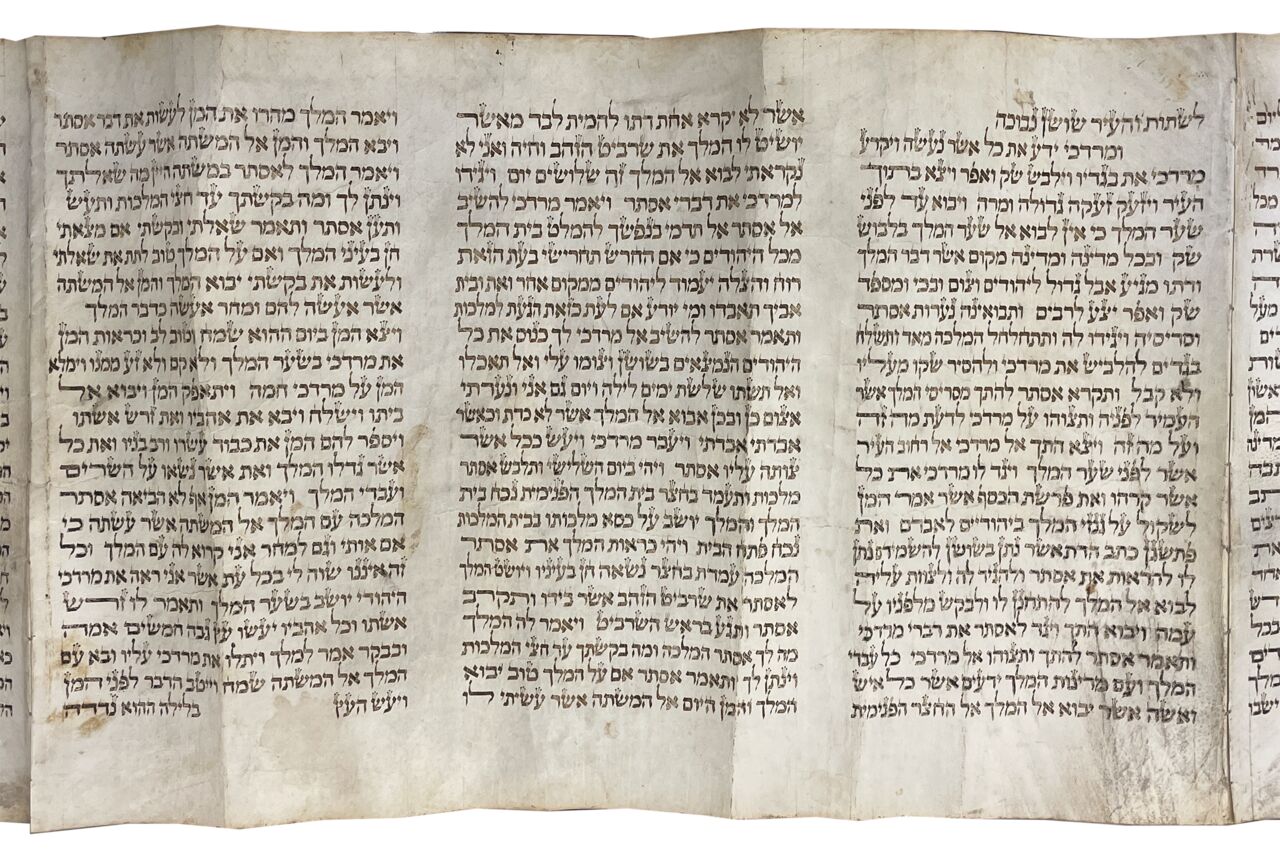 לשתות והעיר שושן נבוכה
ומרדכי ידע את כל אשר נעשה ויקרע
מרדכי את בגדיו וילבש שק ואפר ויצא בתוך
העיר ויזעק זעקה גדולה ומרה ויבוא עד לפני
שער המלך כי אין לבוא אל שער המלך בלבוש
שק ובכל מדינה ומדינה מקום אשר דבר המלך
ודתו מגיע אבל גדול ליהודים וצום ובכי ומספד
שק ואפר יצע לרבים ותבואינה נערות אסתר
וסריסיה ויגידו לה ותתחלחל המלכה מאד ותשלח
בגדים להלביש את מרדכי ולהסיר שקו מעליו
ולא קבל ותקרא אסתר להתך מסריסי המלך אשר
העמיד לפניה ותצוהו על מרדכי לדעת מה זה
ועל מה זה ויצא התך אל מרדכי אל רחוב העיר
אשר לפני שער המלך ויגד לו מרדכי את כל
אשר קרהו ואת פרשת הכסף אשר אמר המן
לשקול על גנזי המלך ביהודיים לאבדם ואת
פתשגן כתב הדת אשר נתן בשושן להשמידם נתן
לו להראות את אסתר ולהגיד לה ולצוות עליה
לבוא אל המלך להתחנן לו ולבקש מלפניו על
עמה ויבוא התך ויגד לאסתר את דברי מרדכי
ותאמר אסתר להתך ותצוהו אל מרדכי כל עבדי
המלך ועם מדינות המלך ידעים אשר כל איש
ואשה אשר יבוא אל המלך אל החצר הפנימית
אשר לא יקרא אחת דתו להמית לבד מאשר
יושיט לו המלך את שרביט הזהב וחיה ואני לא
נקראתי לבוא אל המלך זה שלושים יום ויגידו
למרדכי את דברי אסתר ויאמר מרדכי להשיב
אל אסתר אל תדמי בנפשך להמלט בית המלך
מכל היהודים כי אם החרש תחרישי בעת הזאת
רוח והצלה יעמוד ליהודים ממקום אחר ואת ובית
אביך תאבדו ומי יודע אם לעת כזאת הגעת למלכות
ותאמר אסתר להשיב אל מרדכי לך כנוס את כל
היהודים הנמצאים בשושן וצומו עלי ואל תאכלו
ואל תשתו שלשת ימים לילה ויום גם אני ונערתי
אצום כן ובכן אבוא אל המלך אשר לא כדת וכאשר
אבדתי אבדתי ויעבר מרדכי ויעש ככל אשר
צותה עליו אסתר ויהי ביום השלישי ותלבש אסתר
מלכות ותעמד בחצר בית המלך הפנימית נכח בית
המלך והמלך יושב על כסא מלכותו בבית המלכות
נכח פתח הבית ויהי כראות המלך את אסתר
המלכה עמדת בחצר נשאה חן בעיניו ויושט המלך
לאסתר את שרביט הזהב אשר בידו ותקרב
אסתר ותגע בראש השרביט ויאמר לה המלך
מה לך אסתר המלכה ומה בקשתך עד חצי המלכות
וינתן לך ותאמר אסתר אם על המלך טוב יבוא
המלך והמן היום אל המשתה אשר עשיתי לו
ויאמר המלך מהרו את המן לעשות את דבר אסתר
ויבא המלך והמן אל המשתה אשר עשתה אסתר
ויאמר המלך לאסתר במשתה היין מה שאלתך
וינתן לך ומה בקשתך עד חצי המלכות ותעש
ותען אסתר ותאמר שאלתי ובקשתי אם מצאתי
חן בעיני המלך ואם על המלך טוב לתת את שאלתי
ולעשות את בקשתי יבוא המלך והמן אל המשתה
אשר אעשה להם ומחר אעשה כדבר המלך
ויצא המן ביום ההוא שמח וטוב לב וכראות המן
את מרדכי בשער המלך ולא קם ולא זע ממנו וימלא
המן על מרדכי חמה ויתאפק המן ויבוא אל
ביתו וישלח ויבא את אהביו ואת זרש אשתו
ויספר להם המן את כבוד עשרו ורב בניו ואת כל
אשר גדלו המלך ואת אשר נשאו על השרים
ועבדי המלך ויאמר המן אף לא הביאה אסתר
המלכה עם המלך אל המשתה אשר עשתה כי
אם אותי וגם למחר אני קרוא לה עם המלך וכל
זה איננו שוה לי בכל עת אשר אני ראה את מרדכי
היהודי יושב בשער המלך ותאמר לו זרש
אשתו וכל אהביו יעשו עץ גבה חמשים אמה
ובבקר אמר למלך ויתלו את מרדכי עליו ובא עם
המלך אל המשתה שמח וייטב הדבר לפני המן
ויעש העץ בלילה ההוא נדדה